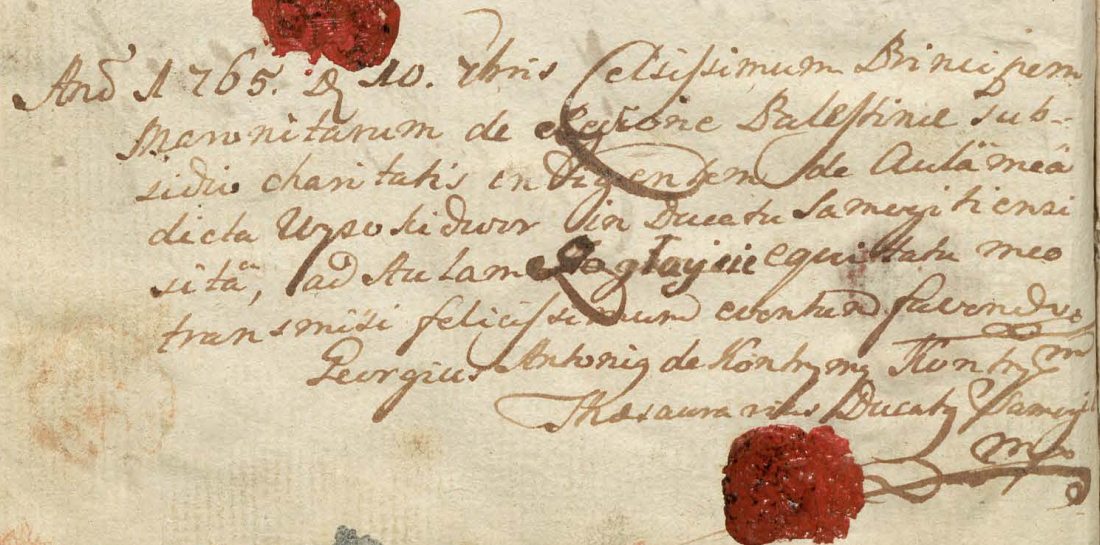 Anō 1765. D 10. 7bris Celsissimum Principem
Maronitarum de Regione Palestinæ sub-
sidio charitatis indigentem de Aulâ meâ
dicta Wysokidwor in Ducatu Samogitiensi
sitâ, ad Aulam equitatu meo
transmisi felicissimum eventum favendo
Georgius Antonig de Kontrymy Kontrym
Thesaurarius Ducatg Samogit
mp